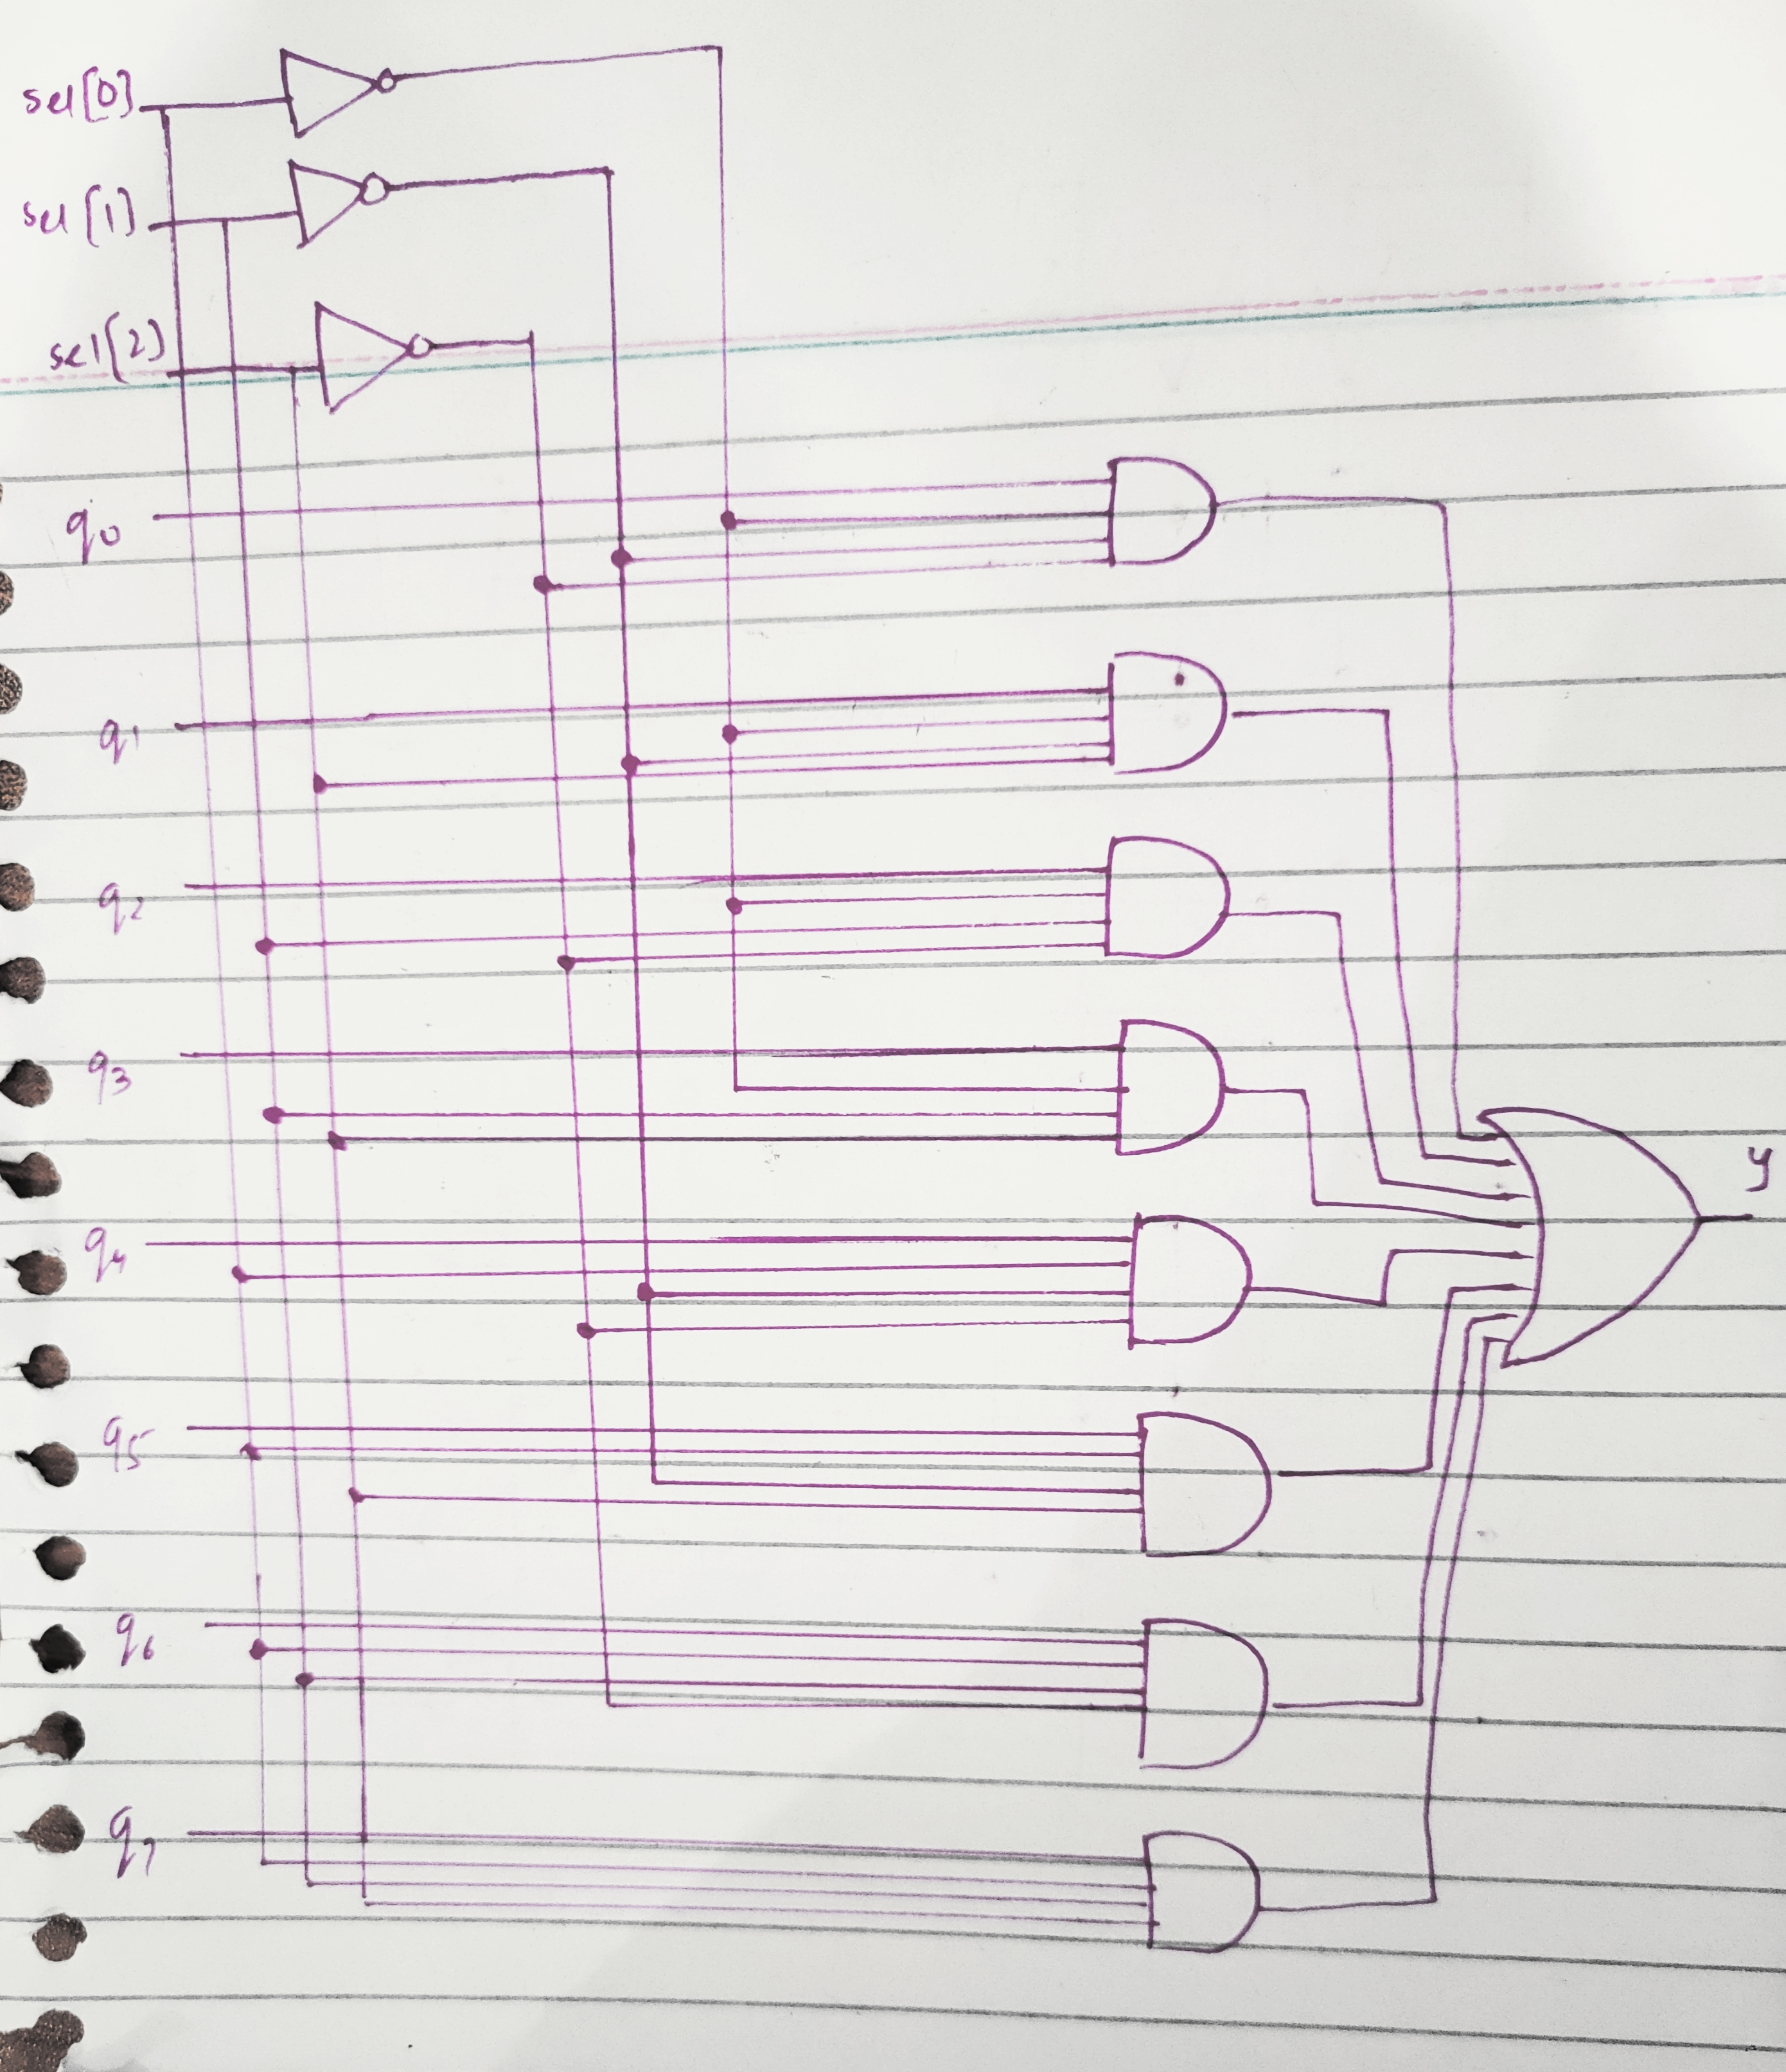 sel[0]
sel[1]
sel[2]
q0
q1
q2
q3
q4
q5
q6
q7
y